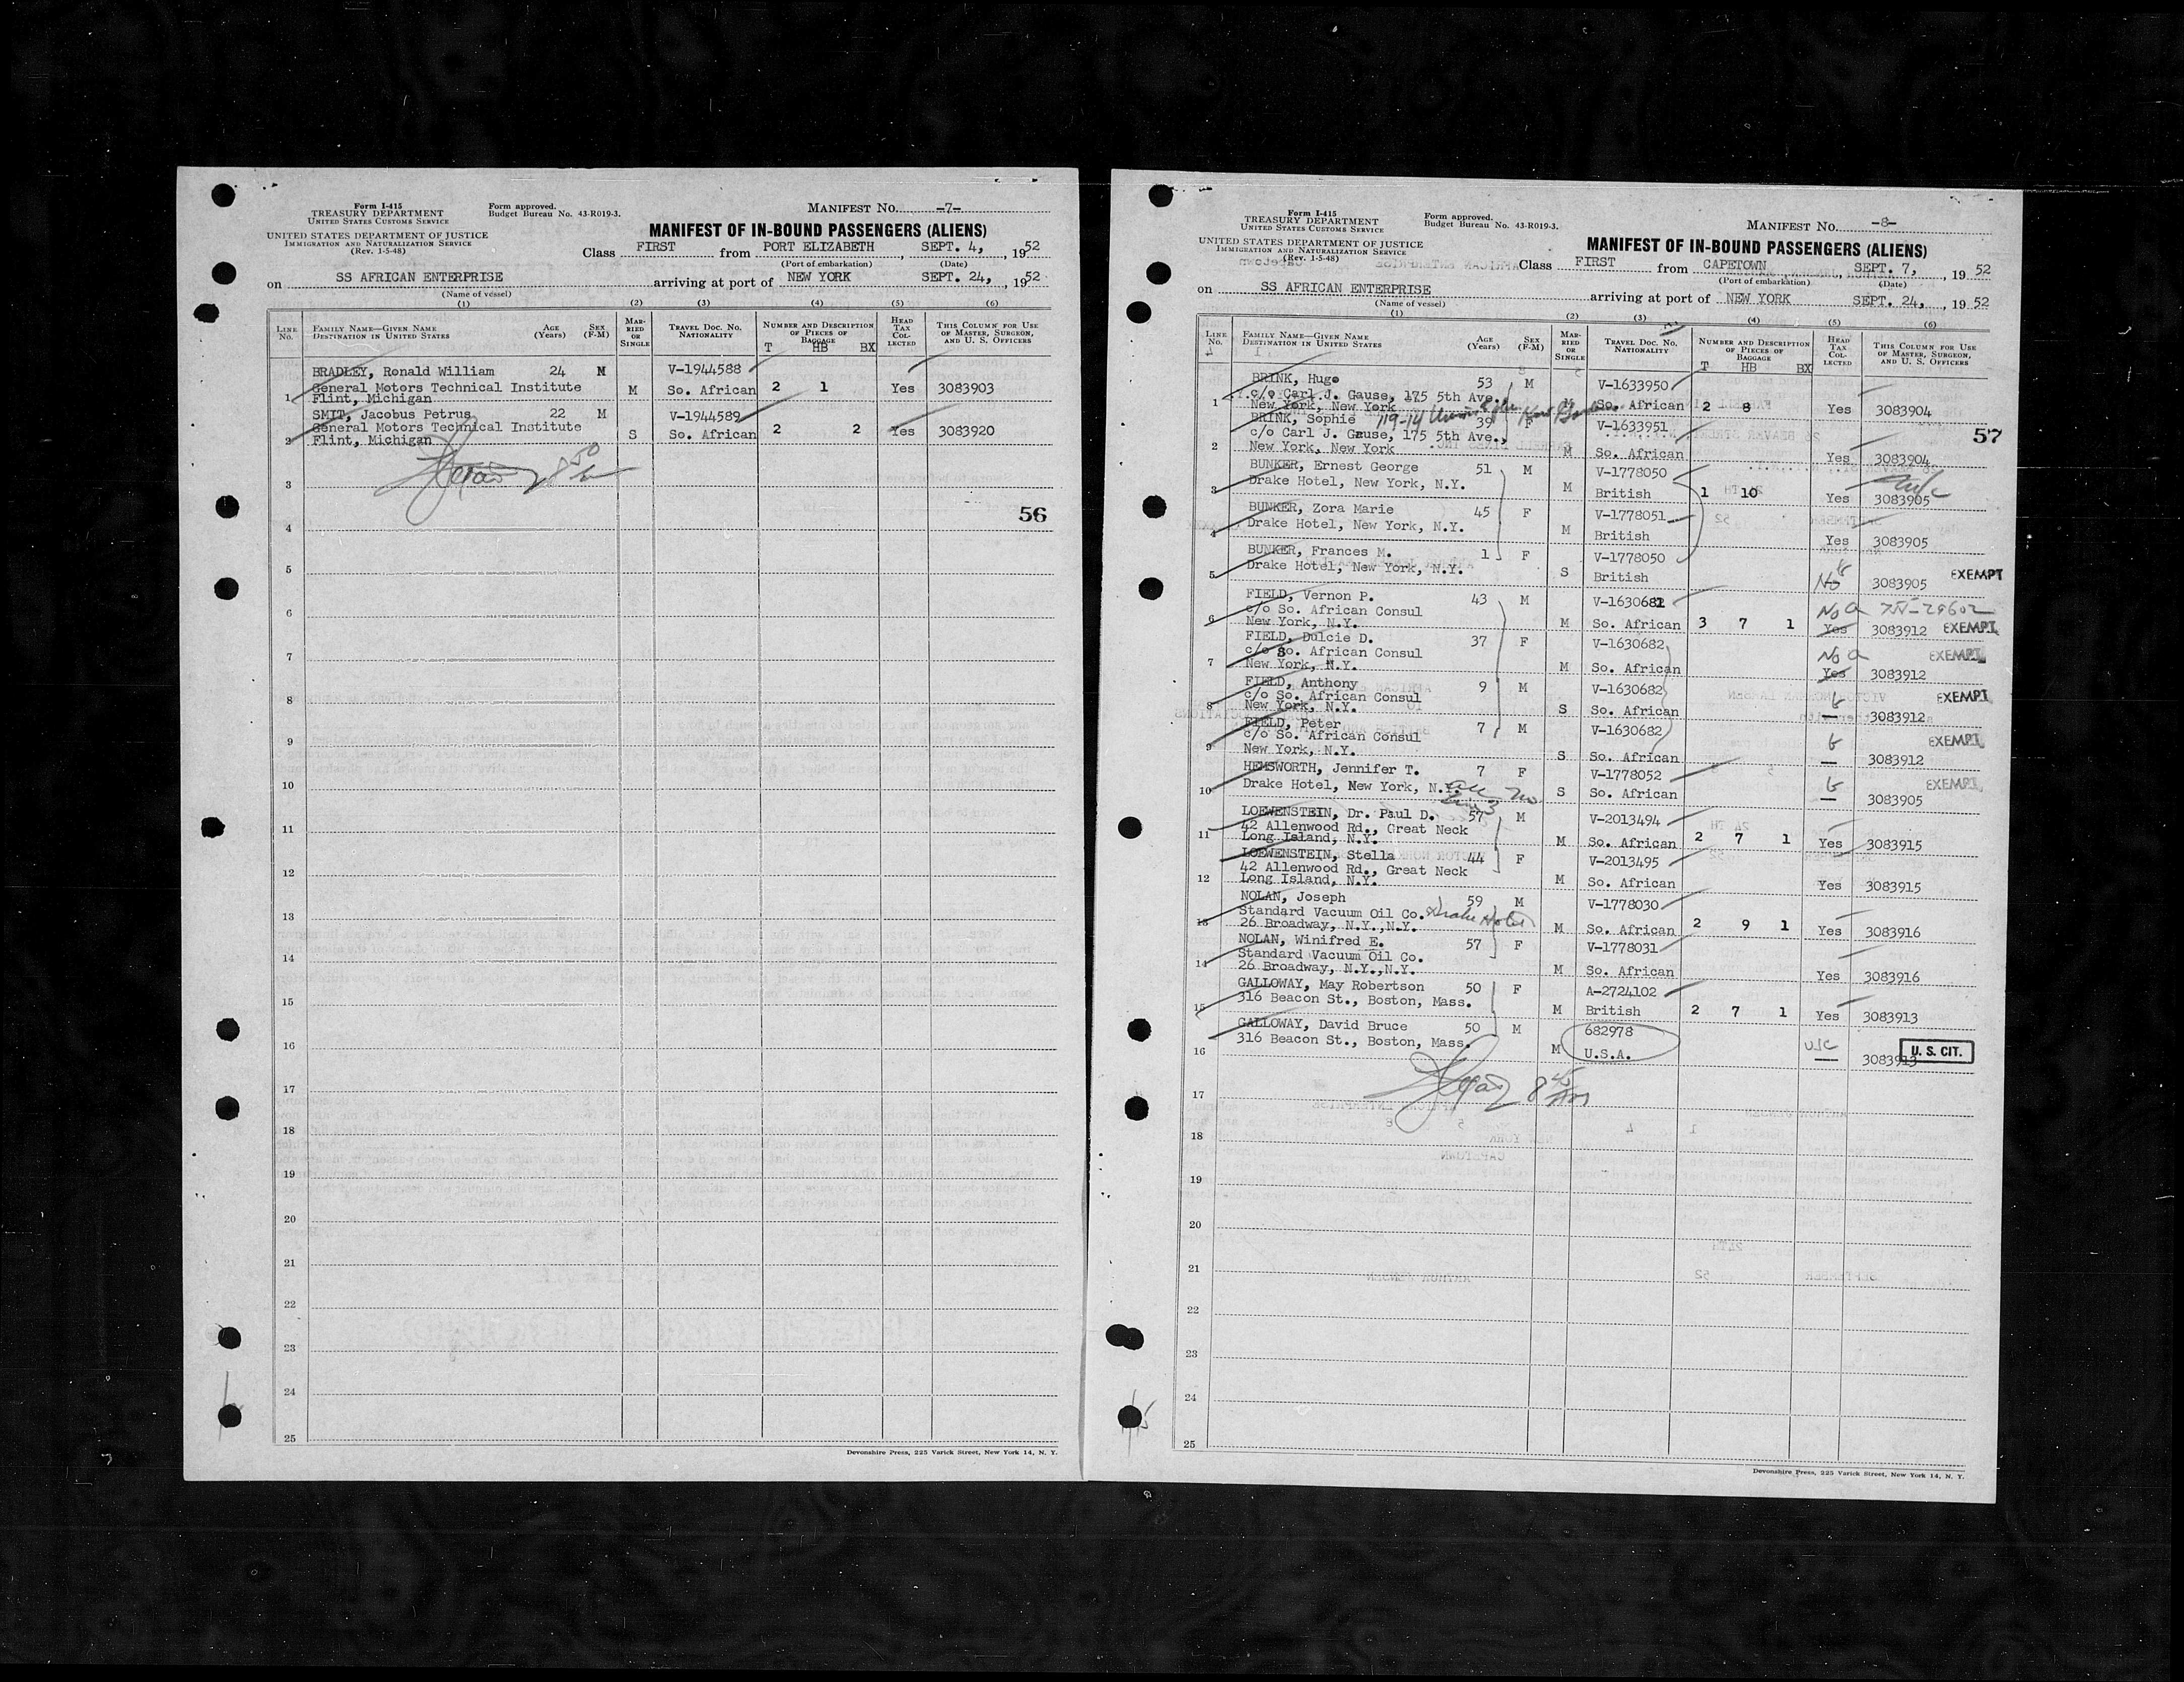 Form I-415
TREASURY DEPARTMENT
UNITED STATES CUSTOMS SERVICE
UNITED STATES DEPARTMENT OF JUSTICE
IMMIGRATION AND NATURALIZATION SERVICE
(Rev. 1-5-48)
Form approved.
Budget Bureau No. 43-R019-3.
MANIFEST No. -7-
MANIFEST OF IN-BOUND PASSENGERS (ALIENS)
Class FIRST from PORT ELIZABETH, SEPT. 4, 1952
(Port of embarkation) (Date)
on SS AFRICAN ENTERPRISE arriving at port of NEW YORK SEPT. 24, 1952
(Name of vessel)
(1) (2) (3) (4) (5) (6)
LINE No. FAMILY NAME—GIVEN NAME DESTINATION IN UNITED STATES AGE (Years) SEX (F-M) MARRIED OR SINGLE TRAVEL DOC. NO. NATIONALITY NUMBER AND DESCRIPTION OF PIECES OF BAGGAGE HEAD TAX COLLECTED THIS COLUMN FOR USE OF MASTER, SURGEON, AND U. S. OFFICERS
T HB BX
BRADLEY, Ronald William 24 M V-1944588
General Motors Technical Institute
1 Flint, Michigan M So. African 2 1 Yes 3083903
SMIT, Jacobus Petrus 22 M V-1944589
General Motors Technical Institute
2 Flint, Michigan S So. African 2 2 Yes 3083920
3
56
4
5
6
7
8
9
10
11
12
13
14
15
16
17
18
19
20
21
22
23
24
25
Devonshire Press, 225 Varick Street, New York 14, N. Y.
Form I-415
TREASURY DEPARTMENT
UNITED STATES CUSTOMS SERVICE
UNITED STATES DEPARTMENT OF JUSTICE
IMMIGRATION AND NATURALIZATION SERVICE
(Rev. 1-5-48)
Form approved.
Budget Bureau No. 43-R019-3.
MANIFEST No. -8-
MANIFEST OF IN-BOUND PASSENGERS (ALIENS)
Class FIRST from CAPETOWN, SEPT. 7, 1952
(Port of embarkation) (Date)
on SS AFRICAN ENTERPRISE arriving at port of NEW YORK SEPT. 24, 1952
(Name of vessel)
(1) (2) (3) (4) (5) (6)
LINE No. FAMILY NAME—GIVEN NAME DESTINATION IN UNITED STATES AGE (Years) SEX (F-M) MARRIED OR SINGLE TRAVEL DOC. NO. NATIONALITY NUMBER AND DESCRIPTION OF PIECES OF BAGGAGE HEAD TAX COLLECTED THIS COLUMN FOR USE OF MASTER, SURGEON, AND U. S. OFFICERS
T HB BX
BRINK, Hugo 53 M V-1633950
c/o Carl J. Gause, 175 5th Ave.
1 New York, New York M So. African 2 8 Yes 3083904
BRINK, Sophie 39 F V-1633951
57
c/o Carl J. Gause, 175 5th Ave.,
2 New York, New York M So. African Yes 3083904
BUNKER, Ernest George 51 M V-1778050
3 Drake Hotel, New York, N.Y. M British 1 10 Yes 3083905
BUNKER, Zora Marie 45 F V-1778051
4 Drake Hotel, New York, N.Y. M British Yes 3083905
BUNKER, Frances M. 1 F V-1778050
5 Drake Hotel, New York, N.Y. S British No 3083905 EXEMPT
FIELD, Vernon P. 43 M V-1630681
c/o So. African Consul No a
6 New York, N.Y. M So. African 3 7 1 Yes 3083912 EXEMPT
FIELD, Dulcie D. 37 F V-1630682
c/o So. African Consul No a EXEMPT
7 New York, N.Y. M So. African Yes 3083912
FIELD, Anthony 9 M V-1630682
c/o So. African Consul EXEMPT
8 New York, N.Y. S So. African — 3083912
FIELD, Peter 7 M V-1630682
c/o So. African Consul EXEMPT
9 New York, N.Y. S So. African — 3083912
HEMSWORTH, Jennifer T. 7 F V-1778052
10 Drake Hotel, New York, N.Y. S So. African — 3083905 EXEMPT
LOEWENSTEIN, Dr. Paul D. 57 M V-2013494
42 Allenwood Rd., Great Neck
11 Long Island, N.Y. M So. African 2 7 1 Yes 3083915
LOEWENSTEIN, Stella 44 F V-2013495
42 Allenwood Rd., Great Neck
12 Long Island, N.Y. M So. African Yes 3083915
NOLAN, Joseph 59 M V-1778030
Standard Vacuum Oil Co. Drake Hotel
13 26 Broadway, N.Y.,N.Y. M So. African 2 9 1 Yes 3083916
NOLAN, Winifred E. 57 F V-1778031
Standard Vacuum Oil Co.
14 26 Broadway, N.Y.,N.Y. M So. African Yes 3083916
GALLOWAY, May Robertson 50 F A-2724102
15 316 Beacon St., Boston, Mass. M British 2 7 1 Yes 3083913
GALLOWAY, David Bruce 50 M 682978
16 316 Beacon St., Boston, Mass. M U.S.A. USC — 3083913 U. S. CIT.
17
18
19
20
21
22
23
24
25
Devonshire Press, 225 Varick Street, New York 14, N. Y.